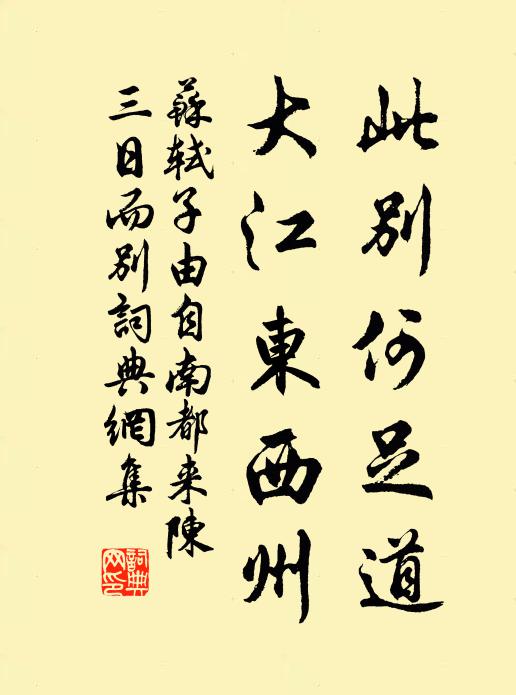 此別何足道
大江東西州
蘇軾子由自南都来陳
三日而別詞典網集
詞典网印